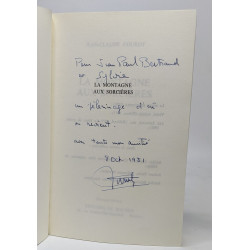 Pour Jean Paul Bertrand
et Sylvie
LA MONTAGNE
AUX SORCIÈRES
un pèlerinage d'où
on revient.
avec toute mon amitié
8 Oct 1981